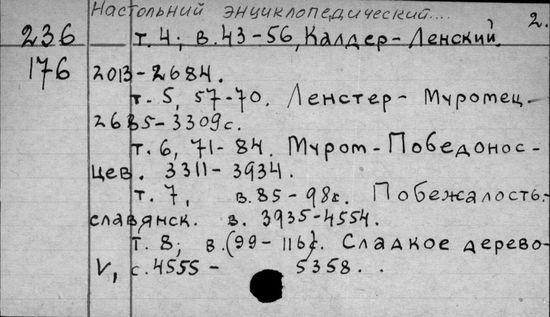 Настольний энциклопедический... 2.
236 т. 4; в. 43-56, Калдер-Ленский,
176 2013-2684.
т. 5, 57-70. Ленстер-Муромец
2685-3309 с.
т. 6, 71-84. Муром-Победонос-
цев. 3311-3934.
т. 7, в. 85-98 Побежалость-
славянск. в. 3935-4554.
т. 8; в. (99-116). Сладкое дерево-
V, с. 4555 - 5358.